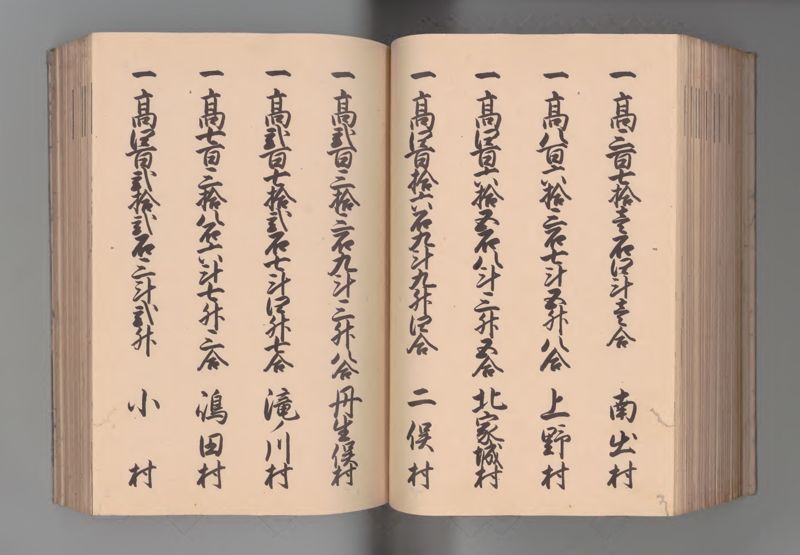 一 高三百七拾壱石四斗壱合 南出村
一 高八百六拾三石七斗五升八合 上野村
一 高四百六拾五石八斗三升五合 北家城村
一 高四百拾六石九斗九升四合 二俣村
一 高弐百三拾三石九斗三升八合 丹生俣村
一 高弐百七拾弐石七斗四升七合 滝ノ川村
一 高七百三拾八石六斗七升三合 嶋田村
一 高四百弐拾弐石三斗弐升 小村